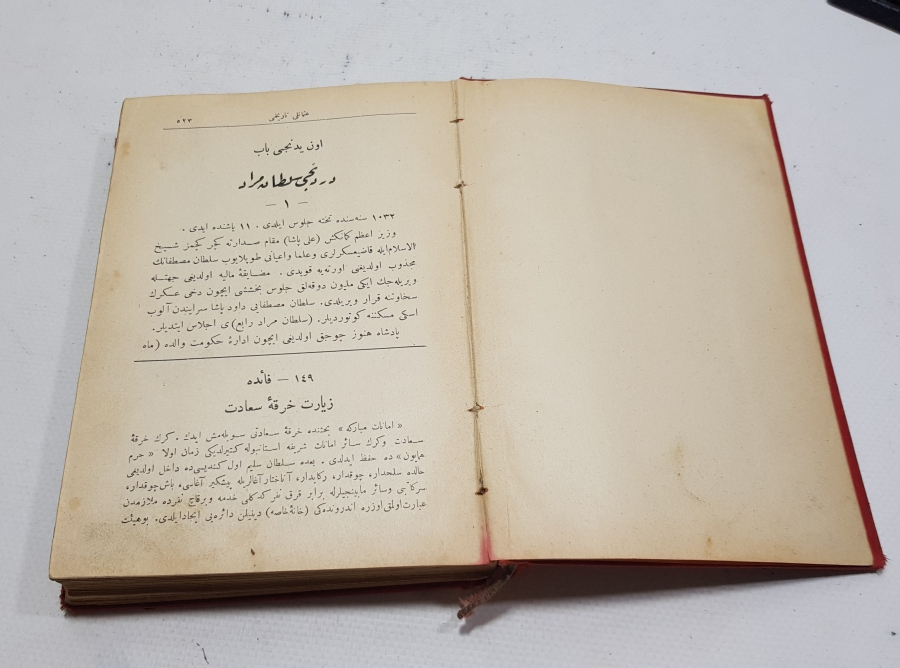 عثمانلی تاریخی ٥٢٣
اون یدنجی باب
دردنجی سلطان مراد
— ١ —
١٠٣٢ سنه‌سنده تخته جلوس ایلدی . ١١ یاشنده ایدی .
وزیر اعظم کمانکش (علی پاشا) مقام صدارته کچر کچمز شیخ
الاسلام‌ایله قاضیعسکرلری وعلما واعیانی طوپلایوب سلطان مصطفانك
مجذوب اولدیغنی اورته‌یه قویدی . مضایقۀ مالیه اولدیغی جهتله
ویریله‌جك ایکی ملیون دوقه‌لق جلوس بخششی ایچون دخی عسکرك
سخاوتنه قرار ویریلدی. سلطان مصطفایی داود پاشا سرایندن آلوب
اسکی مسکننه کوتوردیلر. (سلطان مراد رابع) ی اجلاس ایتدیلر.
پادشاه هنوز چوجق اولدیغی ایچون ادارۀ حکومت والده (ماه
١٤٩ — فائده
زیارت خرقۀ سعادت
« امانات مبارکه » بحثنده خرقۀ سعادتی سویله‌مش ایدك . کرك خرقۀ
سعادت وکرك سائر امانات شریفه استانبوله کتیرلدیکی زمان اولا « حرم
همایون » ده حفظ ایدلدی . بعده سلطان سلیم اول کندیسی‌ده داخل اولدیغی
حالده سلحدار، چوقدار، رکابدار، آناختار آغالریله پیشکیر آغاسی، باش چوقدار،
سرکاتبی وسائر مابینجیلرله برابر قرق نفر کدکلی خدمه وبرقاچ نفرده ملازمدن
عبارت‌اولق اوزره اندروندەکی (خانۀ خاصه) دینیلن دائره‌یی ایجادایلدی. بوهیئت